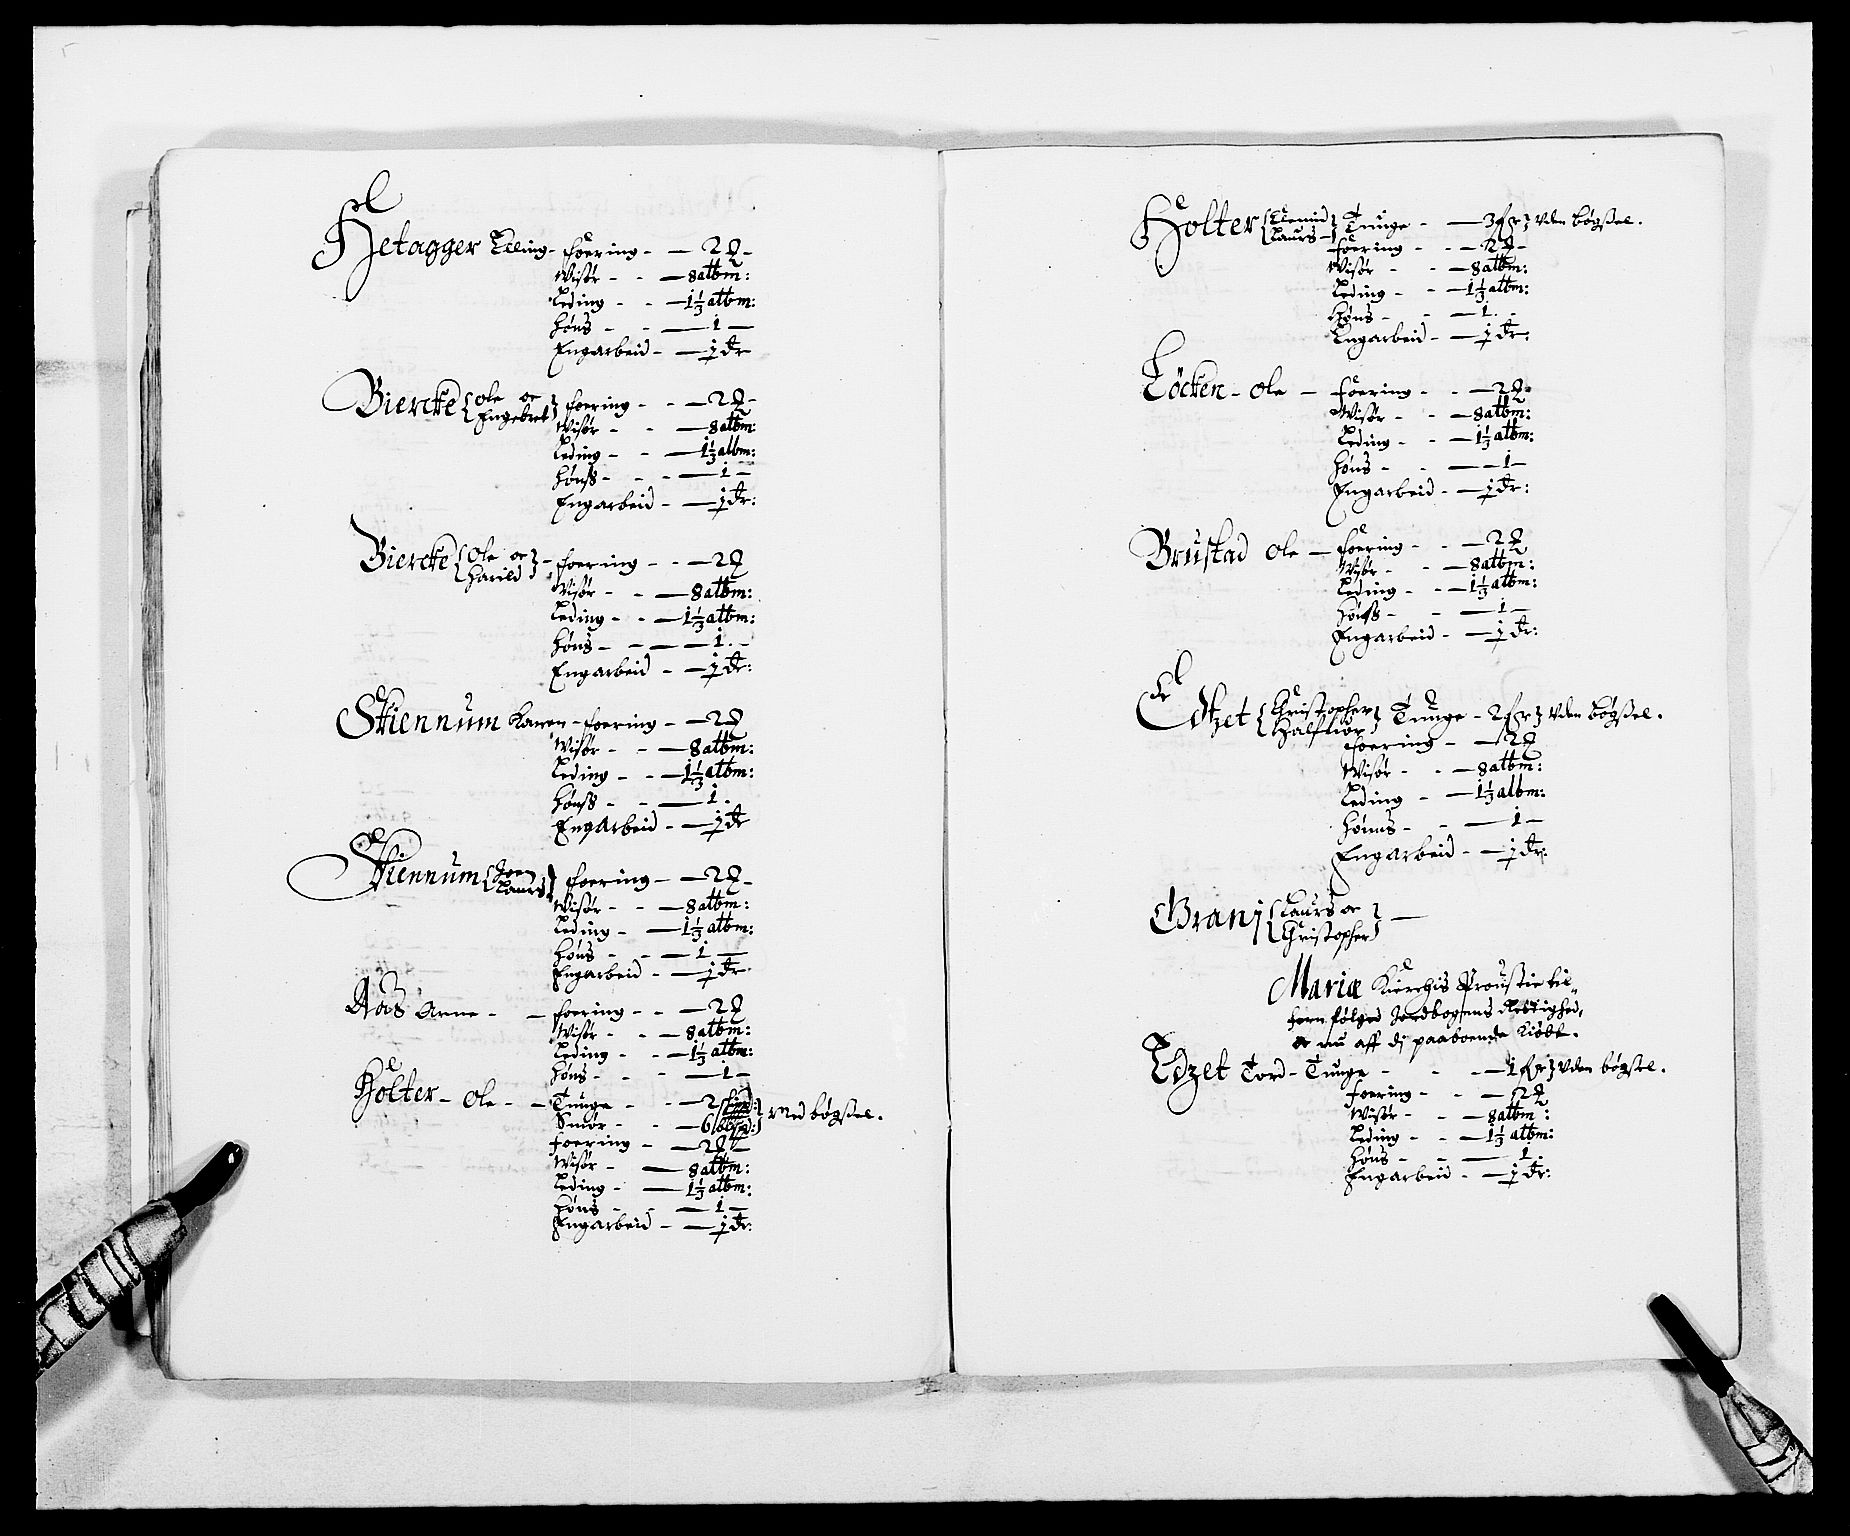 Hetagger Elling - foering - - 2 ℔ -
Wisør - - 8 albm:
Leding - - 1⅓ albm:
høns - - 1 -
Engarbeid - 1 dr
Biercke { Ole oc Engebret } foering - - 2 ℔ -
Wisør - - 8 albm:
Leding - - 1⅓ albm:
hønss - - - 1 -
Engarbeid - 1 dr:
Biercke { Ole oc Harild } - foering - - 2 ℔
Wisør - - 8 albm:
Leding - - 1⅓ albm:
høns - - 1 -
Engarbeid - 1 dr:
Skiennum Karren - foering - 2 ℔
Wisør - - 8 albm:
Leding - - 1⅓ albm:
hønss - - 1 .
Engarbeid - 1 dr
Skiennum { Joen Laurs } foering - 2 ℔ -
Wisør - - 8 albm:
Leding - 1⅓ albm:
høns - - 1 -
Engarbeid - 1 dr
Aas Arne - - foering - - 2 ℔
Wisør - - 8 albm:
Leding - - 1⅓ albm:
høns - - - 1 -
Holter - Ole - - Tunge - - 2
Smør - - 6 } med bøgssel.
foering - 2 ℔ -
Wisør - 8 albm:
Leding - 1⅓ albm:
høns - - 1 -
Engarbeid - 1 dr:
Holter { Laurs } Tunge - 3 fr } vden bøgssel.
foering - - 2 ℔ -
Wisør - - 8 albm:
Leding - - 1⅓ albm:
høns - - 1 . -
Engarbeid - 1 dr:
Löcken - Ole - foering - - 2 ℔
Wisør - - 8 albm:
Leding - - 1⅓ albm:
høns - - 1 -
Engarbeid - 1 dr:
Brustad Ole - foering - - 2 ℔
Wisør - - 8 albm:
Leding - - 1⅓ albm:
hønss - - 1 -
Engarbeid - 1 dr:
Edtzet { Christopher Halfuor } Tunge - 2 fr } vden bøgssel.
foering - 2 ℔
Wisør - - 8 albm:
Leding - 1⅓ albm:
hønns - - 1 -
Engarbeid - 1 dr:
Branj { Laurs oc Christopher } -
Mariæ Kierchis Proustie til-
forn følget Jordbogens Rettighed,
er nu aff dj paaboende kiøbt.
Edzet Tord - Tunge - - 1 fr } vden bøgssel.
foering - - 2 ℔
Wisør - - 8 albm:
Leding - - 1⅓ albm:
høns - - 1 .
Engarbeid - 1 dr: